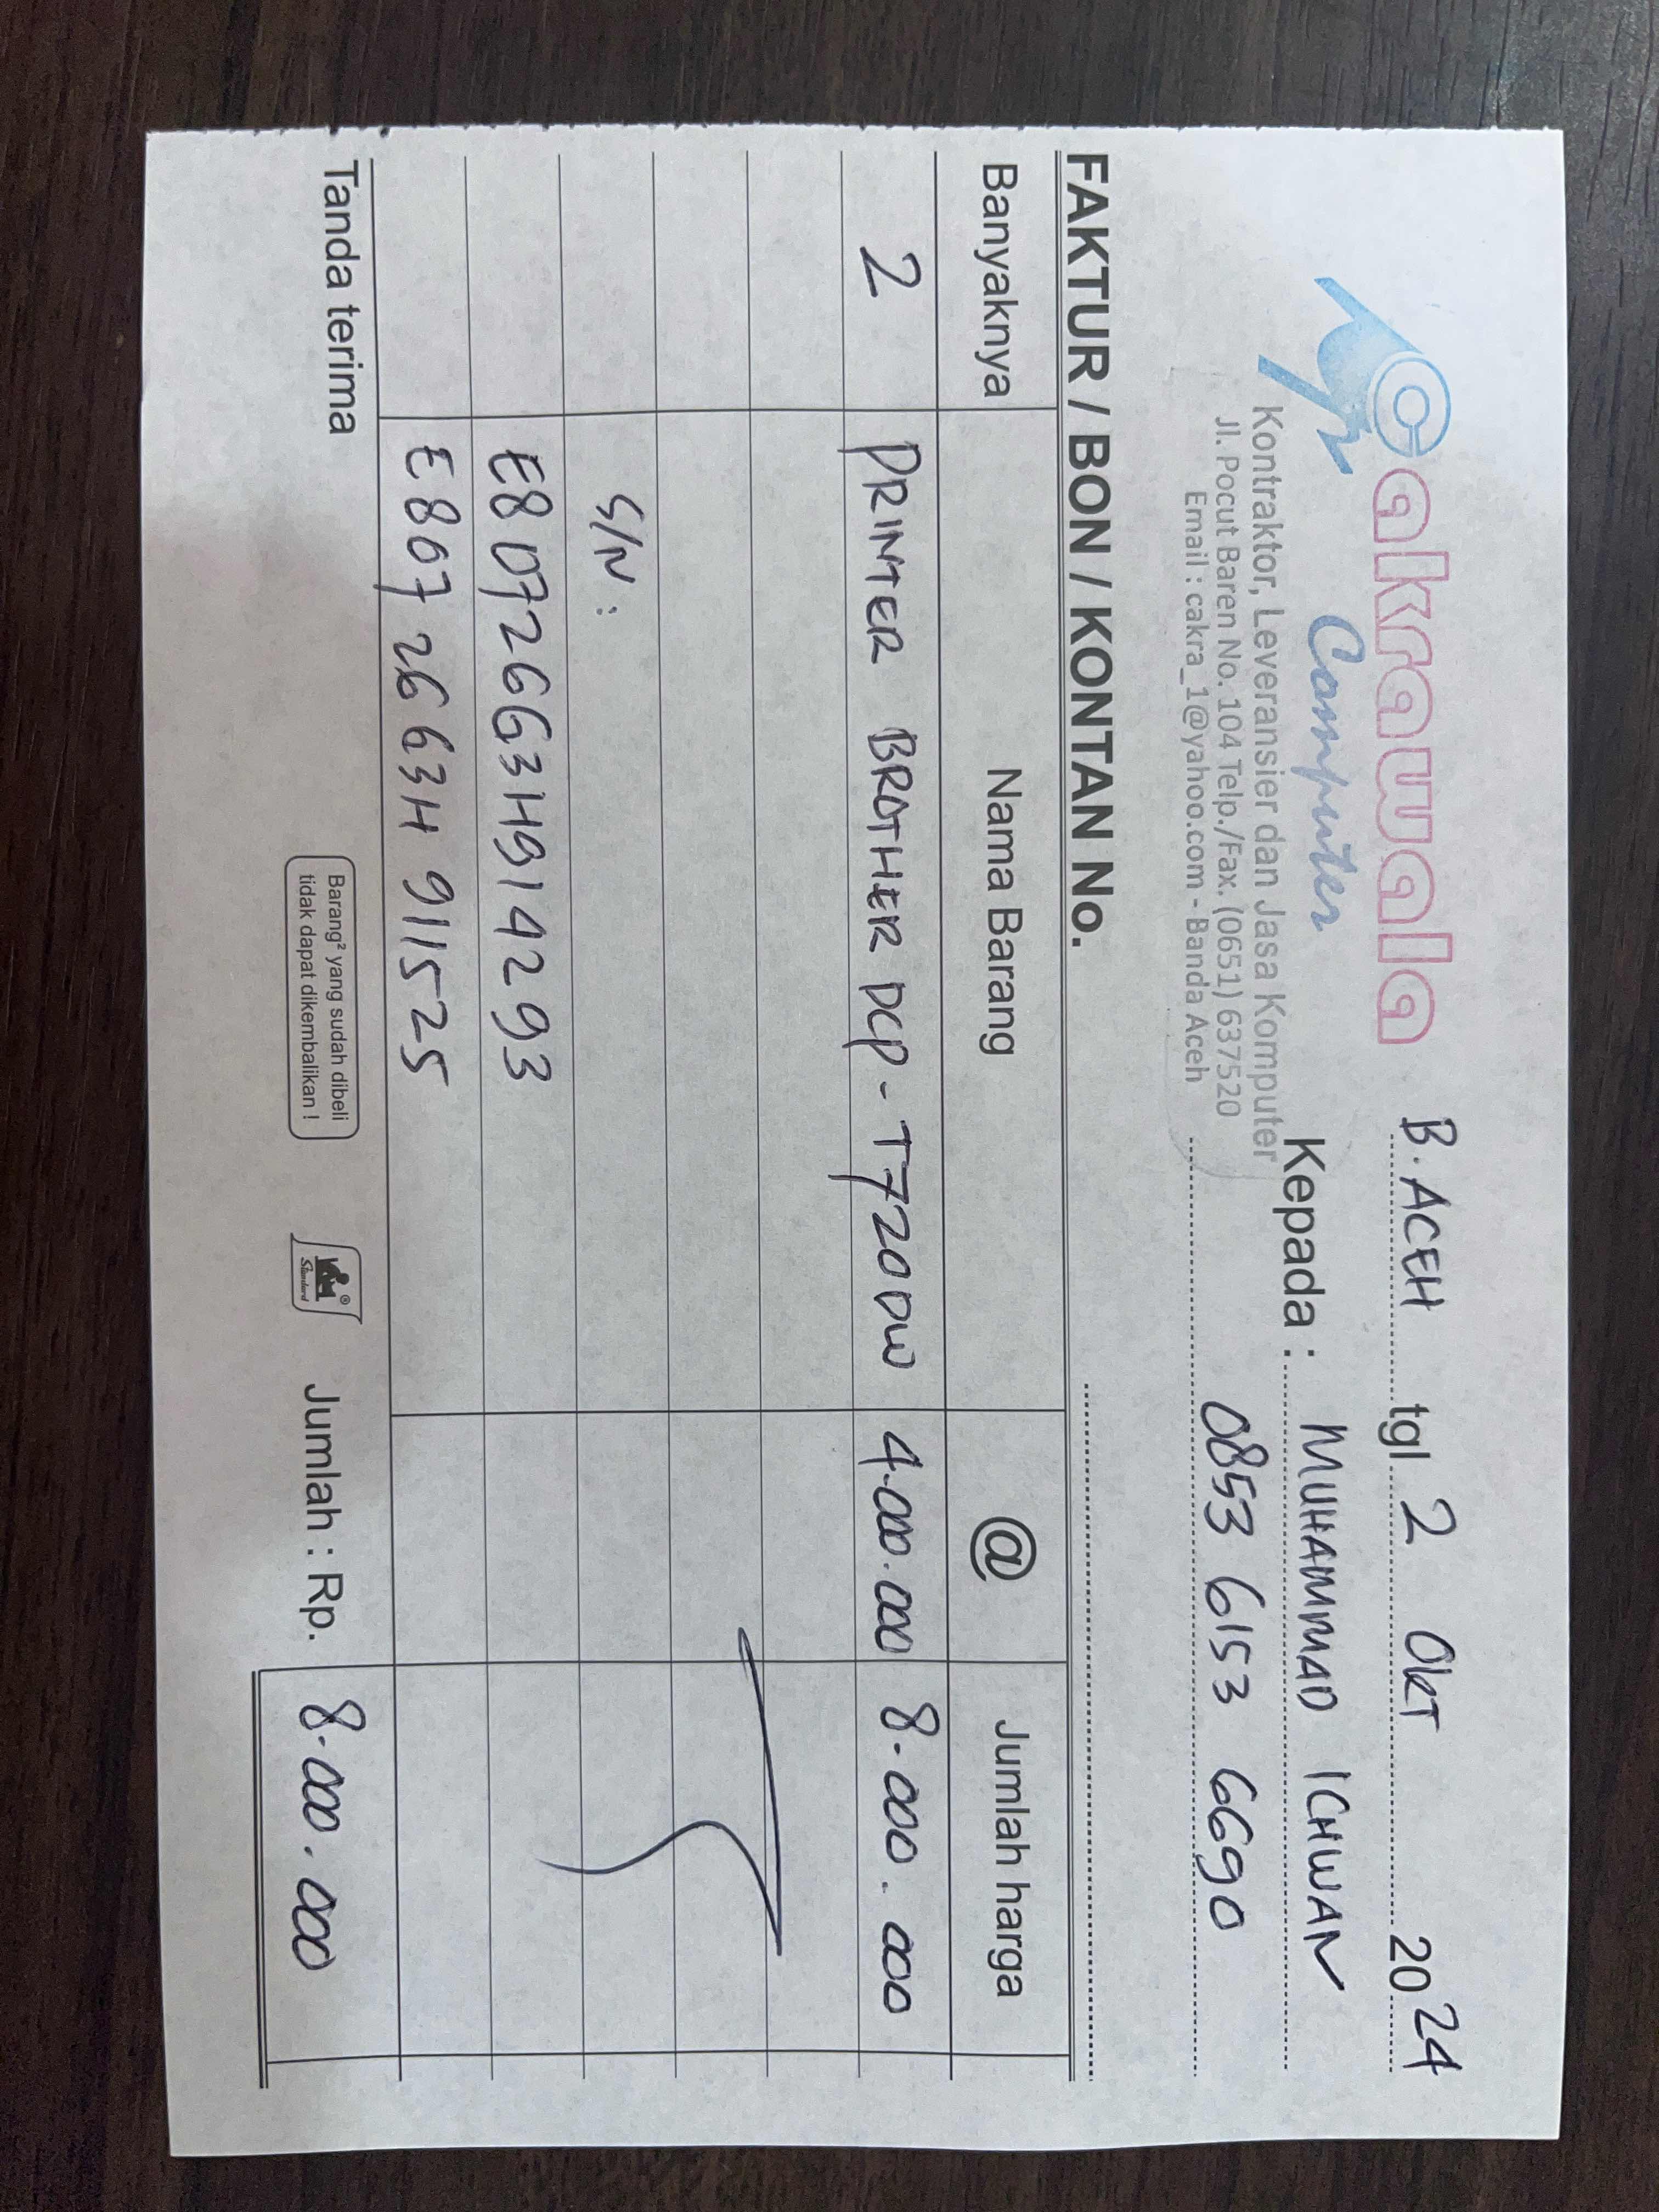 Cakrawala
Computer
Kontraktor, Leveransier dan Jasa Komputer
Jl. Pocut Baren No. 104 Telp./Fax. (0651) 637520
Email : cakra_1@yahoo.com - Banda Aceh
B. ACEH tgl 2 OKT 2024
Kepada : MUHAMMAD ICHWAN
0853 6153 6690
FAKTUR / BON / KONTAN No.
Banyaknya Nama Barang @ Jumlah harga
2 PRINTER BROTHER DCP-T720DW 4.000.000 8.000.000
S/N :
E80726G63H9142 93
E807 26 G3H 911525
Tanda terima
Barang² yang sudah dibeli
tidak dapat dikembalikan !
Standard
Jumlah : Rp. 8.000.000